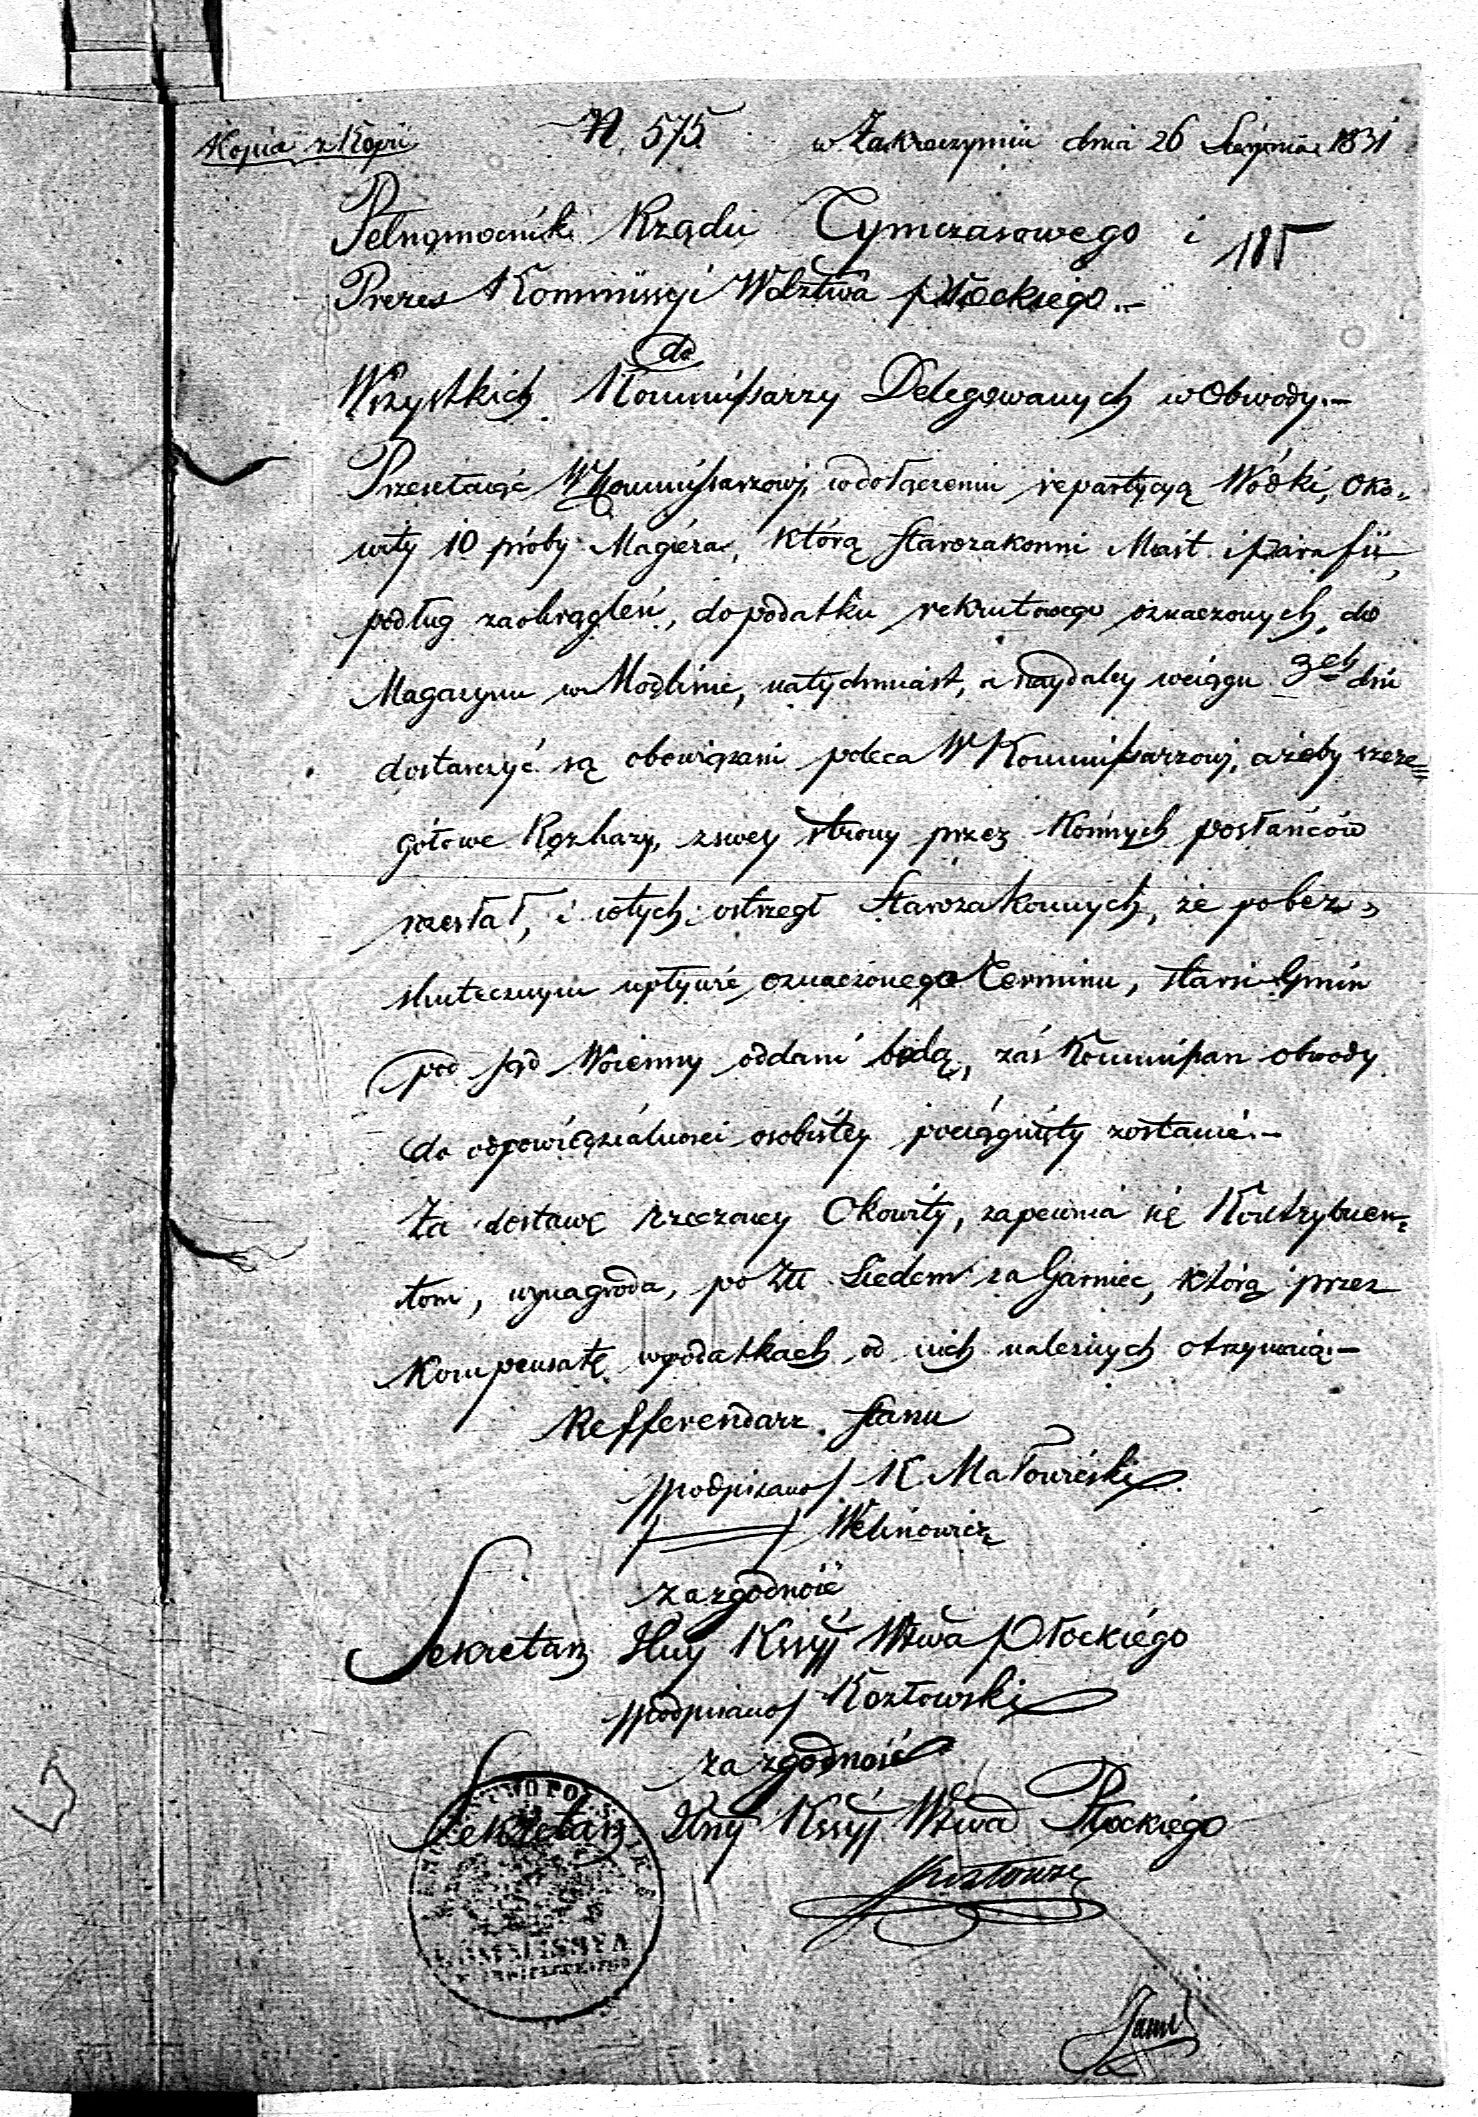 Kopia z Kopii
N. 575
w Zakroczymiu dnia 26 Sierpnia 1831
185
Pełnomocnik Rządu Tymczasowego i
Prezes Kommissyi Wdztwa płockiego.-
do
Wszystkich Kommissarzy Delegowanych w Obwody.-
Przesełaiąc WKommissarzowi, w dołączeniu repartycyą Wódki, Oko-
wity 10 próby Magiera, którą Starozakonni Miast i parafii,
podług zaokrągleń, do podatku rekrutowego oznaczonych, do
Magazynu w Modlinie, natychmiast, a naydaley wciągu 3ch dni
dostarczyć są obowiązani poleca WKommissarzowi, ażeby szcze=
gółowe Rozkazy, zswey strony przez Konnych posłańców
rozesłał, i wtych ostrzegł Starozakonnych, że po bez-
skutecznym upływie oznaczonego Terminu, starsi Gmin
pod sąd Woienny oddani będą, zaś Kommissarz obwodu
do odpowiedzialności osobistey pociągnięty zostanie.-
Za dostawę rzeczoney Okowity, zapewnia się Kontrybuen-
tom, wynagroda, po Złł Siedem za Garniec, którą przez
Kompensatę wpodatkach od nich należnych otrzymaią.-
Refferendarz Stanu
/podpisano/ K Małowieski
/=/ Welinowicz
za zgodność
Sekretarz Jlny Kssyi Wtwa Płockiego
/podpisano/ Kozłowski
za zgodność
Sekretarz Jlny Kssyi Wtwa Płockiego
Kozłowski
KOMMISSYA